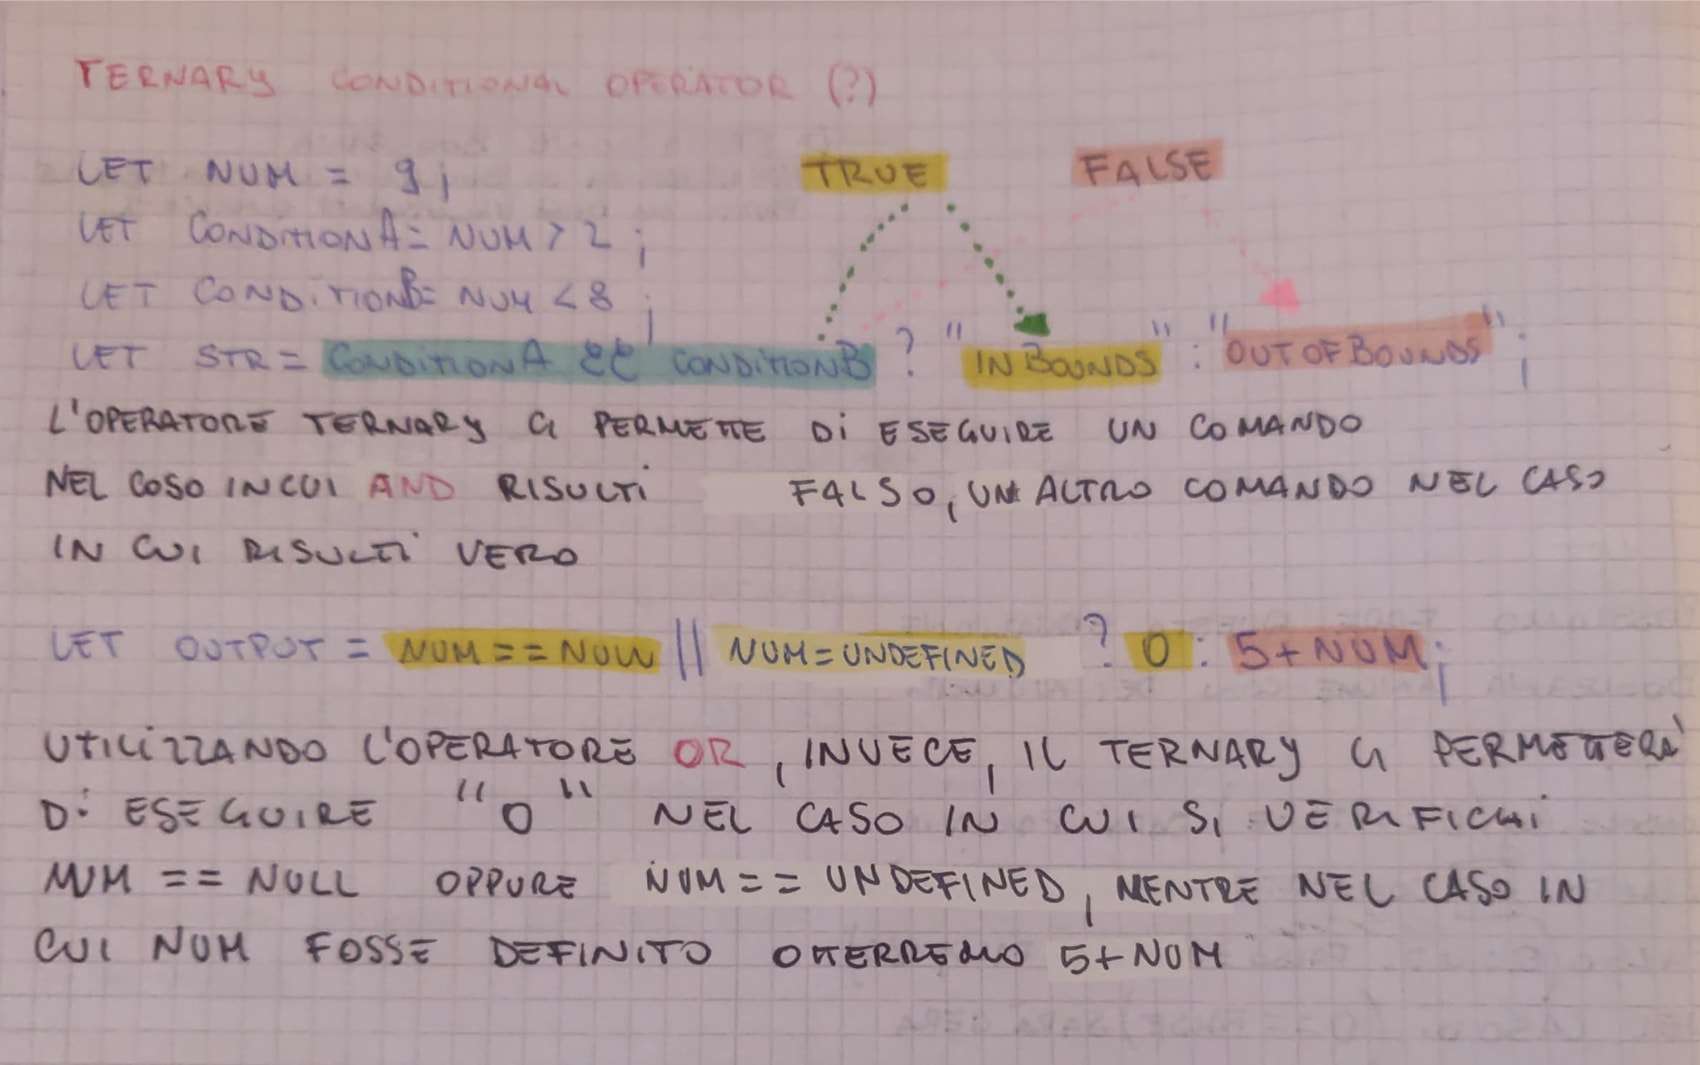 TERNARY CONDITIONAL OPERATOR (?)
LET NUM = 9;
TRUE FALSE
LET CONDITIONA = NUM > 2 ;
LET CONDITIONB = NUM < 8 ;
LET STR = CONDITIONA && CONDITIONB ? "INBOUNDS" : "OUTOFBOUNDS" ;
L'OPERATORE TERNARY CI PERMETTE DI ESEGUIRE UN COMANDO
NEL COSO IN CUI AND RISULTI FALSO, UN ALTRO COMANDO NEL CASO
IN CUI RISULTI VERO
LET OUTPUT = NUM == NULL || NUM=UNDEFINED ? 0 : 5+NUM;
UTILIZZANDO L'OPERATORE OR, INVECE, IL TERNARY CI PERMETTERA'
DI ESEGUIRE "0" NEL CASO IN CUI SI VERIFICHI
NUM == NULL OPPURE NUM == UNDEFINED, MENTRE NEL CASO IN
CUI NUM FOSSE DEFINITO OTTERREMO 5+NUM